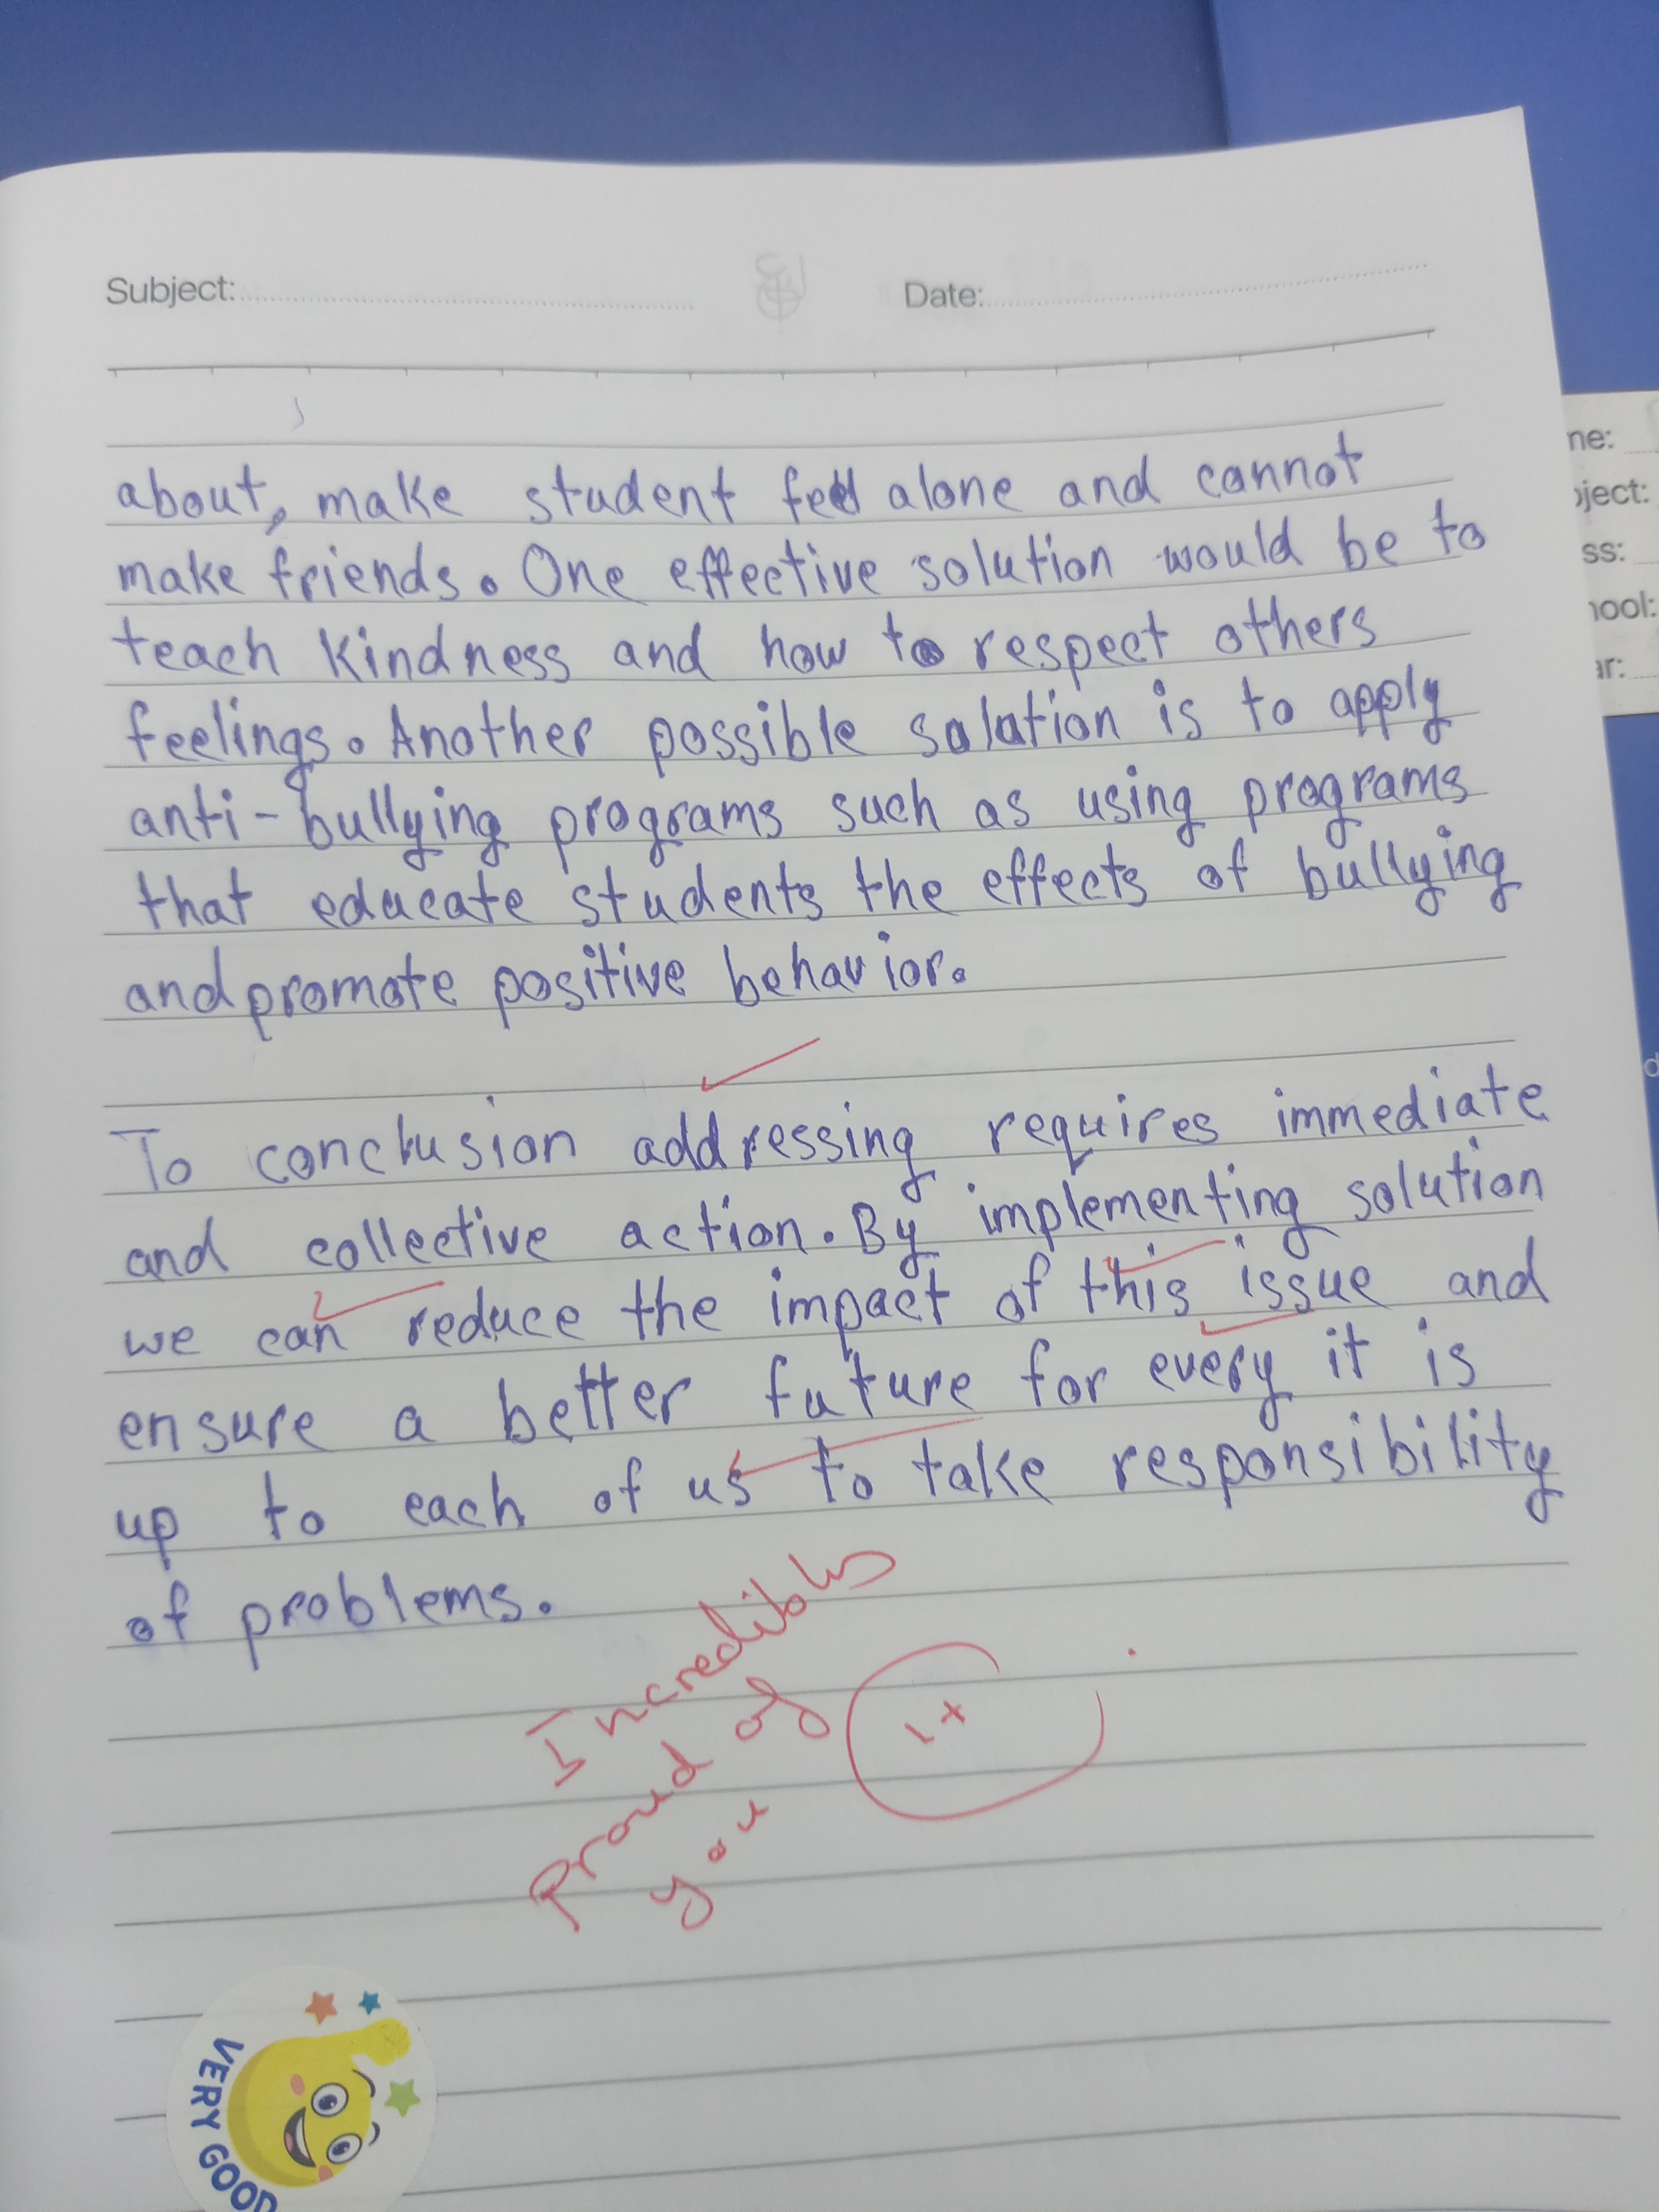 Subject:
Date:
about, make student feel alone and cannot
make friends. One effective solution would be to
teach kindness and how to respect others
feelings. Another possible solution is to apply
anti-bullying programs such as using programs
that educate students the effects of bullying
and promote positive behavior.
To conclusion addressing requires immediate
and collective action. By implementing solution
we can reduce the impact of this issue and
ensure a better future for every it is
up to each of us to take responsibility
of problems.
Proud of
you
VERY GOOD
ne:
ject:
ss:
ool:
ar: